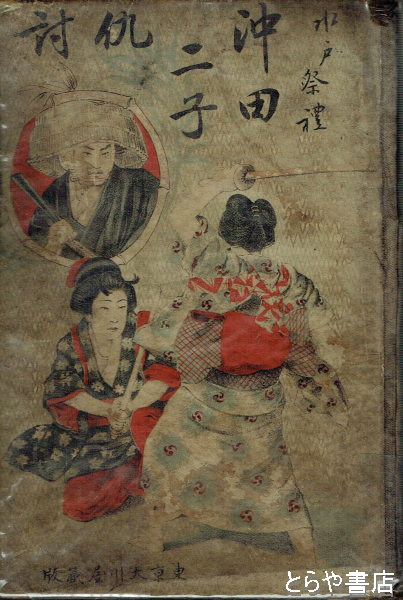 水戸祭禮
沖田
二子
仇
討
東京大川屋蔵版
とらや書店